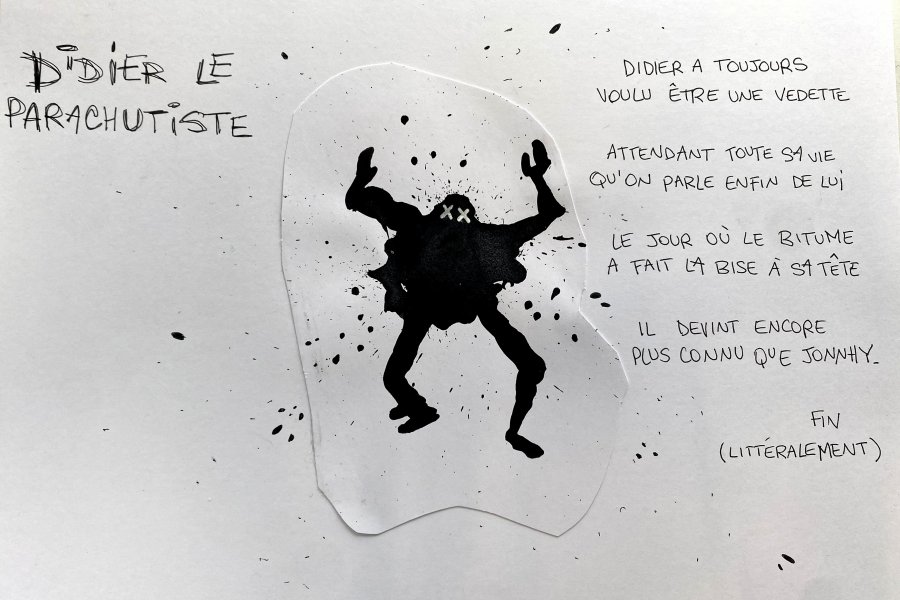 DiDiER LE
PARACHUTiSTE
DIDIER A TOUJOURS
VOULU ÊTRE UNE VEDETTE
ATTENDANT TOUTE SA VIE
QU'ON PARLE ENFIN DE LUI
LE JOUR OÙ LE BITUME
A FAIT LA BISE À SA TÊTE
IL DEVINT ENCORE
PLUS CONNU QUE JONNHY.
FIN
(LITTÉRALEMENT)